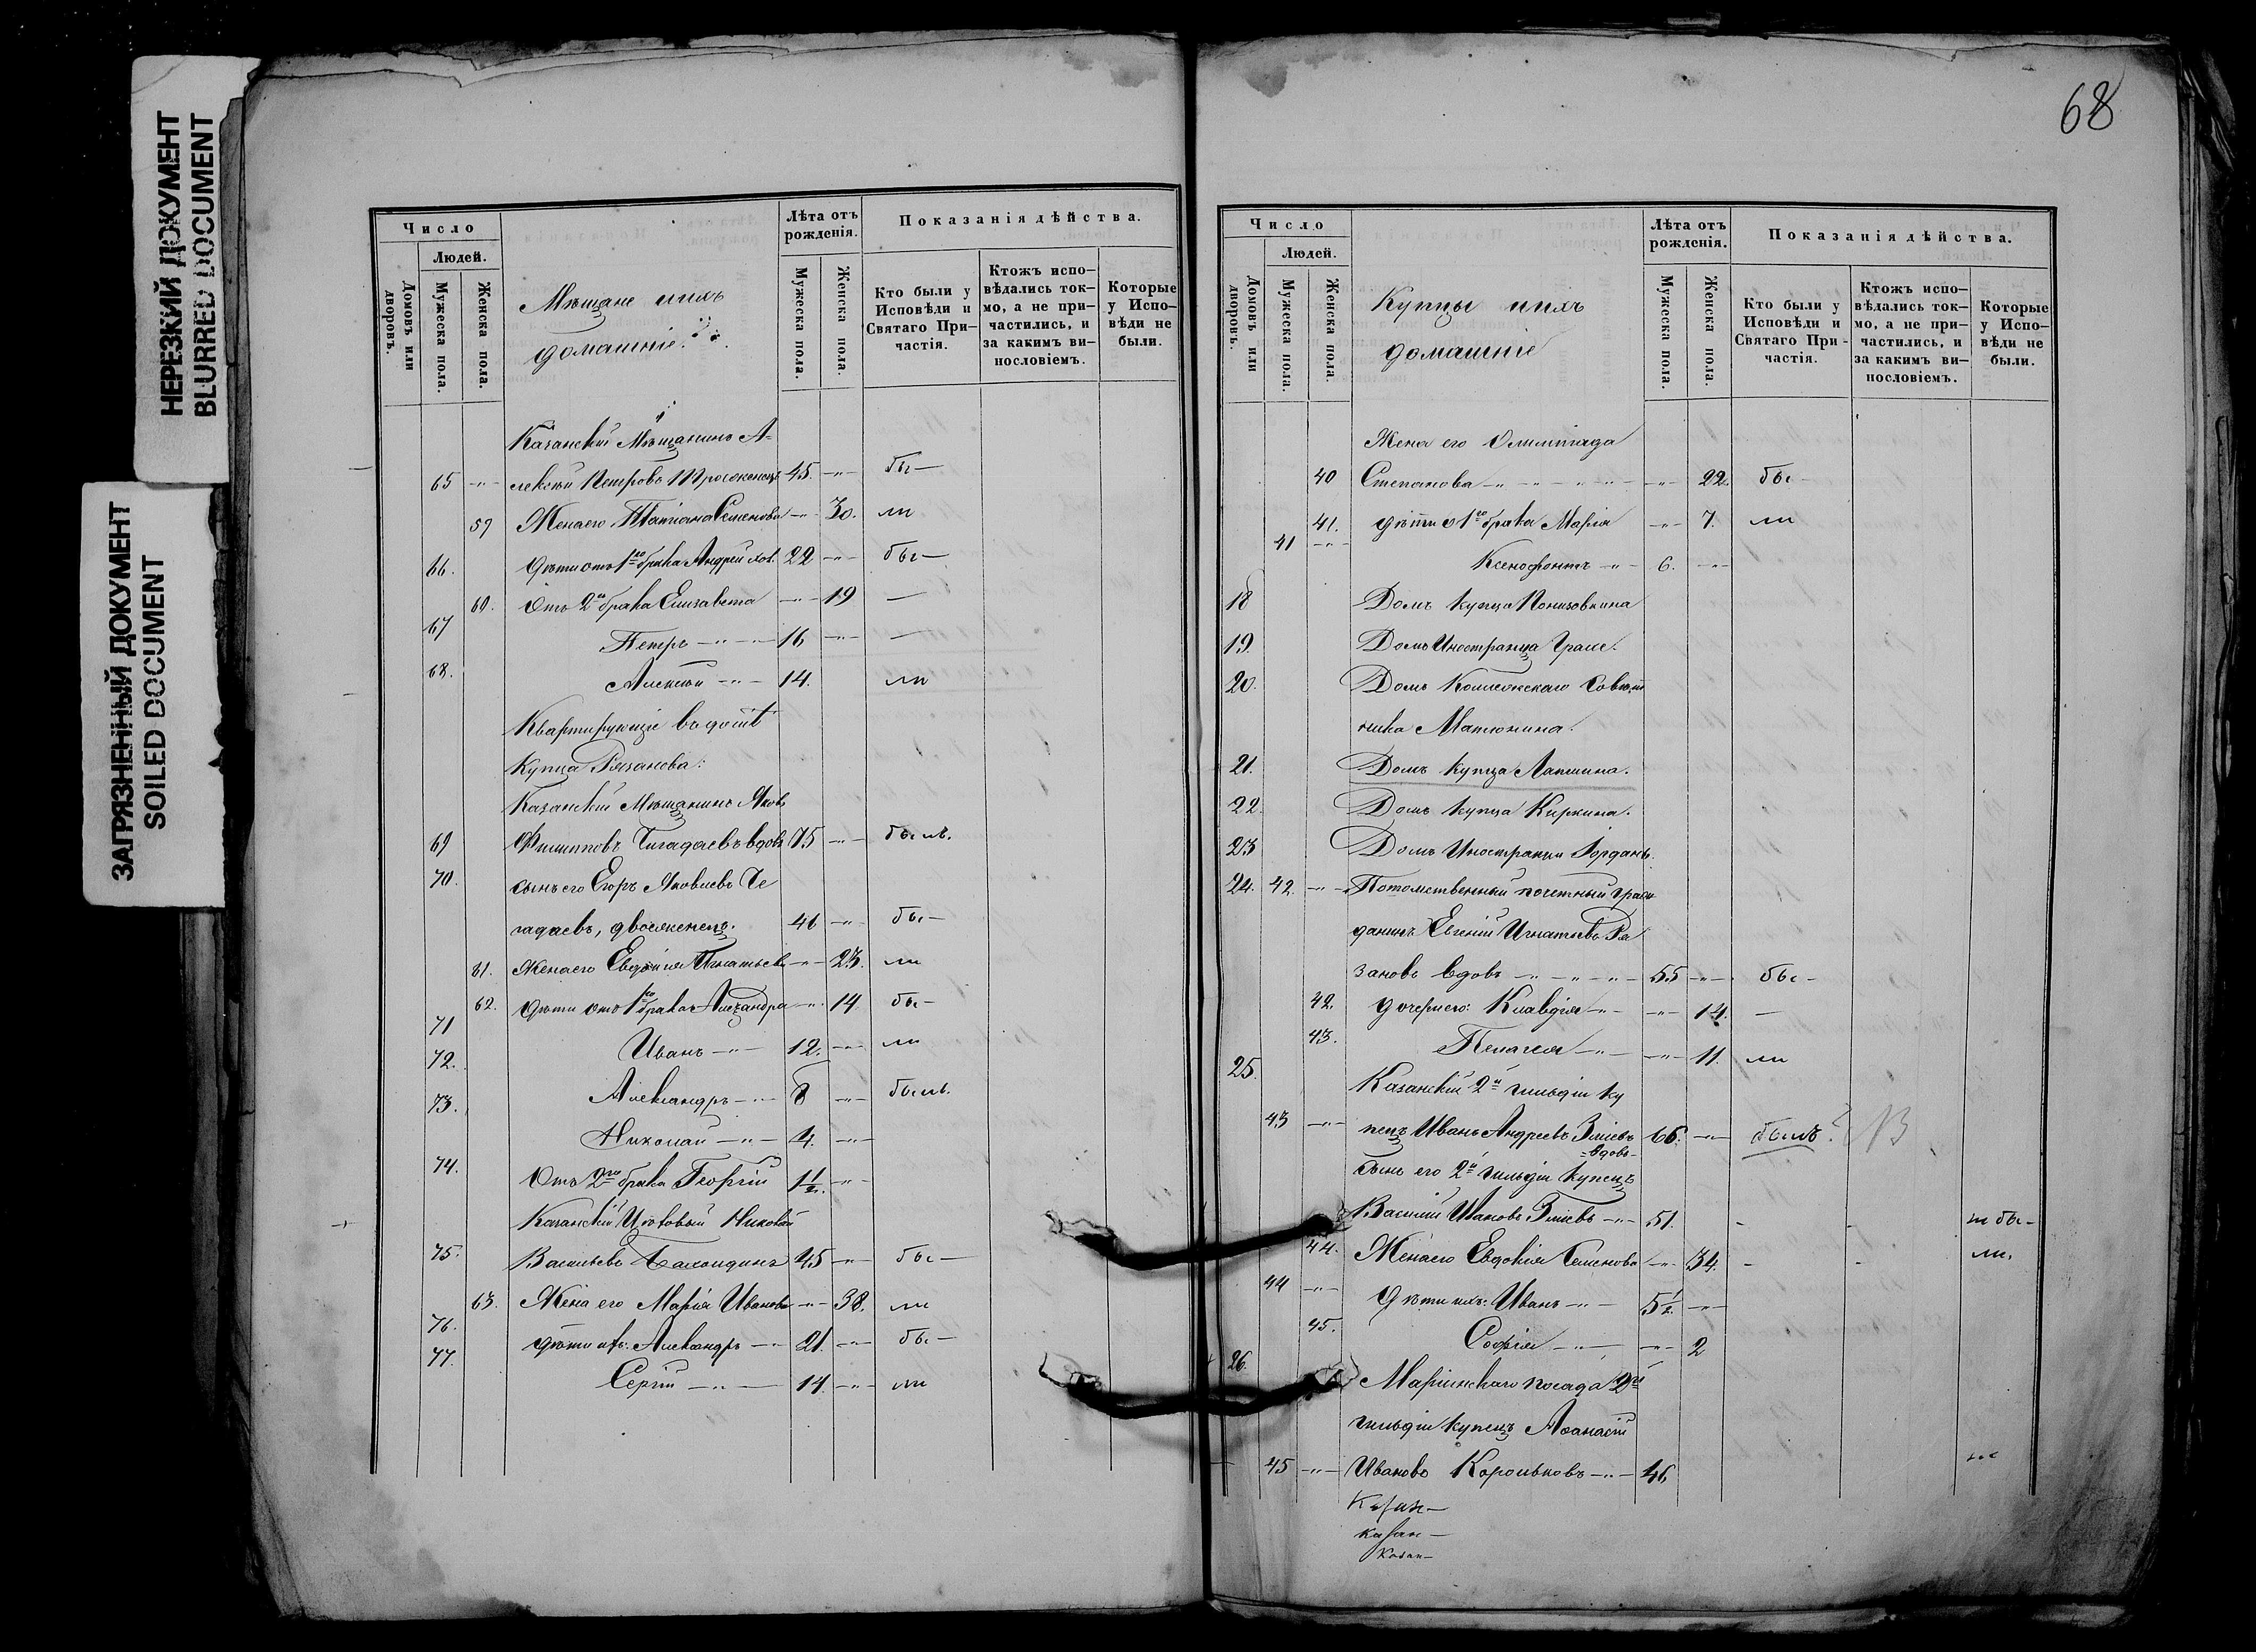 НЕРЕЗКИЙ ДОКУМЕНТ
BLURRED DOCUMENT
ЗАГРЯЗНЕННЫЙ ДОКУМЕНТ
SOILED DOCUMENT
Число
Людей.
Домовъ или дворовъ.
Мужеска пола.
Женска пола.
Мѣщане и ихъ
домашніе.
Лѣта отъ рожденія.
Мужеска пола.
Женска пола.
Показанія дѣйства.
Кто были у Исповѣди и Святаго Причастія.
Ктожъ исповѣдались токмо, а не причастились, и за какимъ винословіемъ.
Которые у Исповѣди не были.
Казанскій Мѣщанинъ А-
65 лексѣй Петровъ 45. бы-
59 Жена его Татіана Семенова 30. ли
66. Дѣти отъ 1го брака Андрей хол. 22 бы-
60. Отъ 2го брака Елизавета 19 —
67 Петръ 16 —
68. Алексѣй 14. ли
Квартирующіе въ домѣ
Купца Рязанова:
Казанскій Мѣщанинъ Яковъ
69 Филипповъ Чигадаевъ вдовъ 75 былъ.
70. сынъ его Егоръ Яковлевъ Че
гадаевъ, двоеженецъ. 46 бы-
61. Жена его Евдокія Игнатьева 23. ли
62. Дѣти отъ 1го брака Александра 14 бы-
71 Иванъ 12. ли
72. Александръ 8 былъ.
73. Николай 4.
74. Отъ 2го брака Георгій 1½.
Казанскій Цѣховый Николай
75. Васильевъ 45 бы-
63. Жена его Марія Иванова 38. ли
76. Дѣти ихъ: Александръ 21. бы-
77. Сергій 14. ли
68
Число
Людей.
Домовъ или дворовъ.
Мужеска пола.
Женска пола.
Купцы и ихъ
домашніе
Лѣта отъ рожденія.
Мужеска пола.
Женска пола.
Показанія дѣйства.
Кто были у Исповѣди и Святаго Причастія.
Ктожъ исповѣдались токмо, а не причастились, и за какимъ винословіемъ.
Которые у Исповѣди не были.
Жена его Олимпіада
40 Степанова 22. бы-
41. Дѣти отъ 1го брака Марія 7. ли
41 Ксенофонтъ 6.
18 Домъ купца Понизовкина
19. Домъ Иностранца
20. Домъ Коллежскаго Совѣт
ника Матюнина.
21. Домъ купца Лапшина.
22. Домъ купца Киркина.
23 Домъ Иностранца Іорданъ.
24. 42. Потомственный почетный граж
данинъ Евгеній Игнатьевъ Ря
зановъ вдовъ 55 бы-
42. дочери его: Клавдія 14. —
43. Пелагея 11. ли
25. Казанскій 2й гильдіи ку
43 пецъ Иванъ Андреевъ Зміевъ 66. былъ.
вдовъ
Сынъ его 2й гильдіи купецъ
Василій Ивановъ Зміевъ 51. не бы-
44. Жена его Евдокія Семенова 34. ли.
44 Дѣти ихъ: Иванъ 5½.
45. Софія 2
26. Маріинскаго посада 2й
гильдіи купецъ Аѳанасій
45 Ивановъ Корольковъ 46
Казан-
казан-
казан-